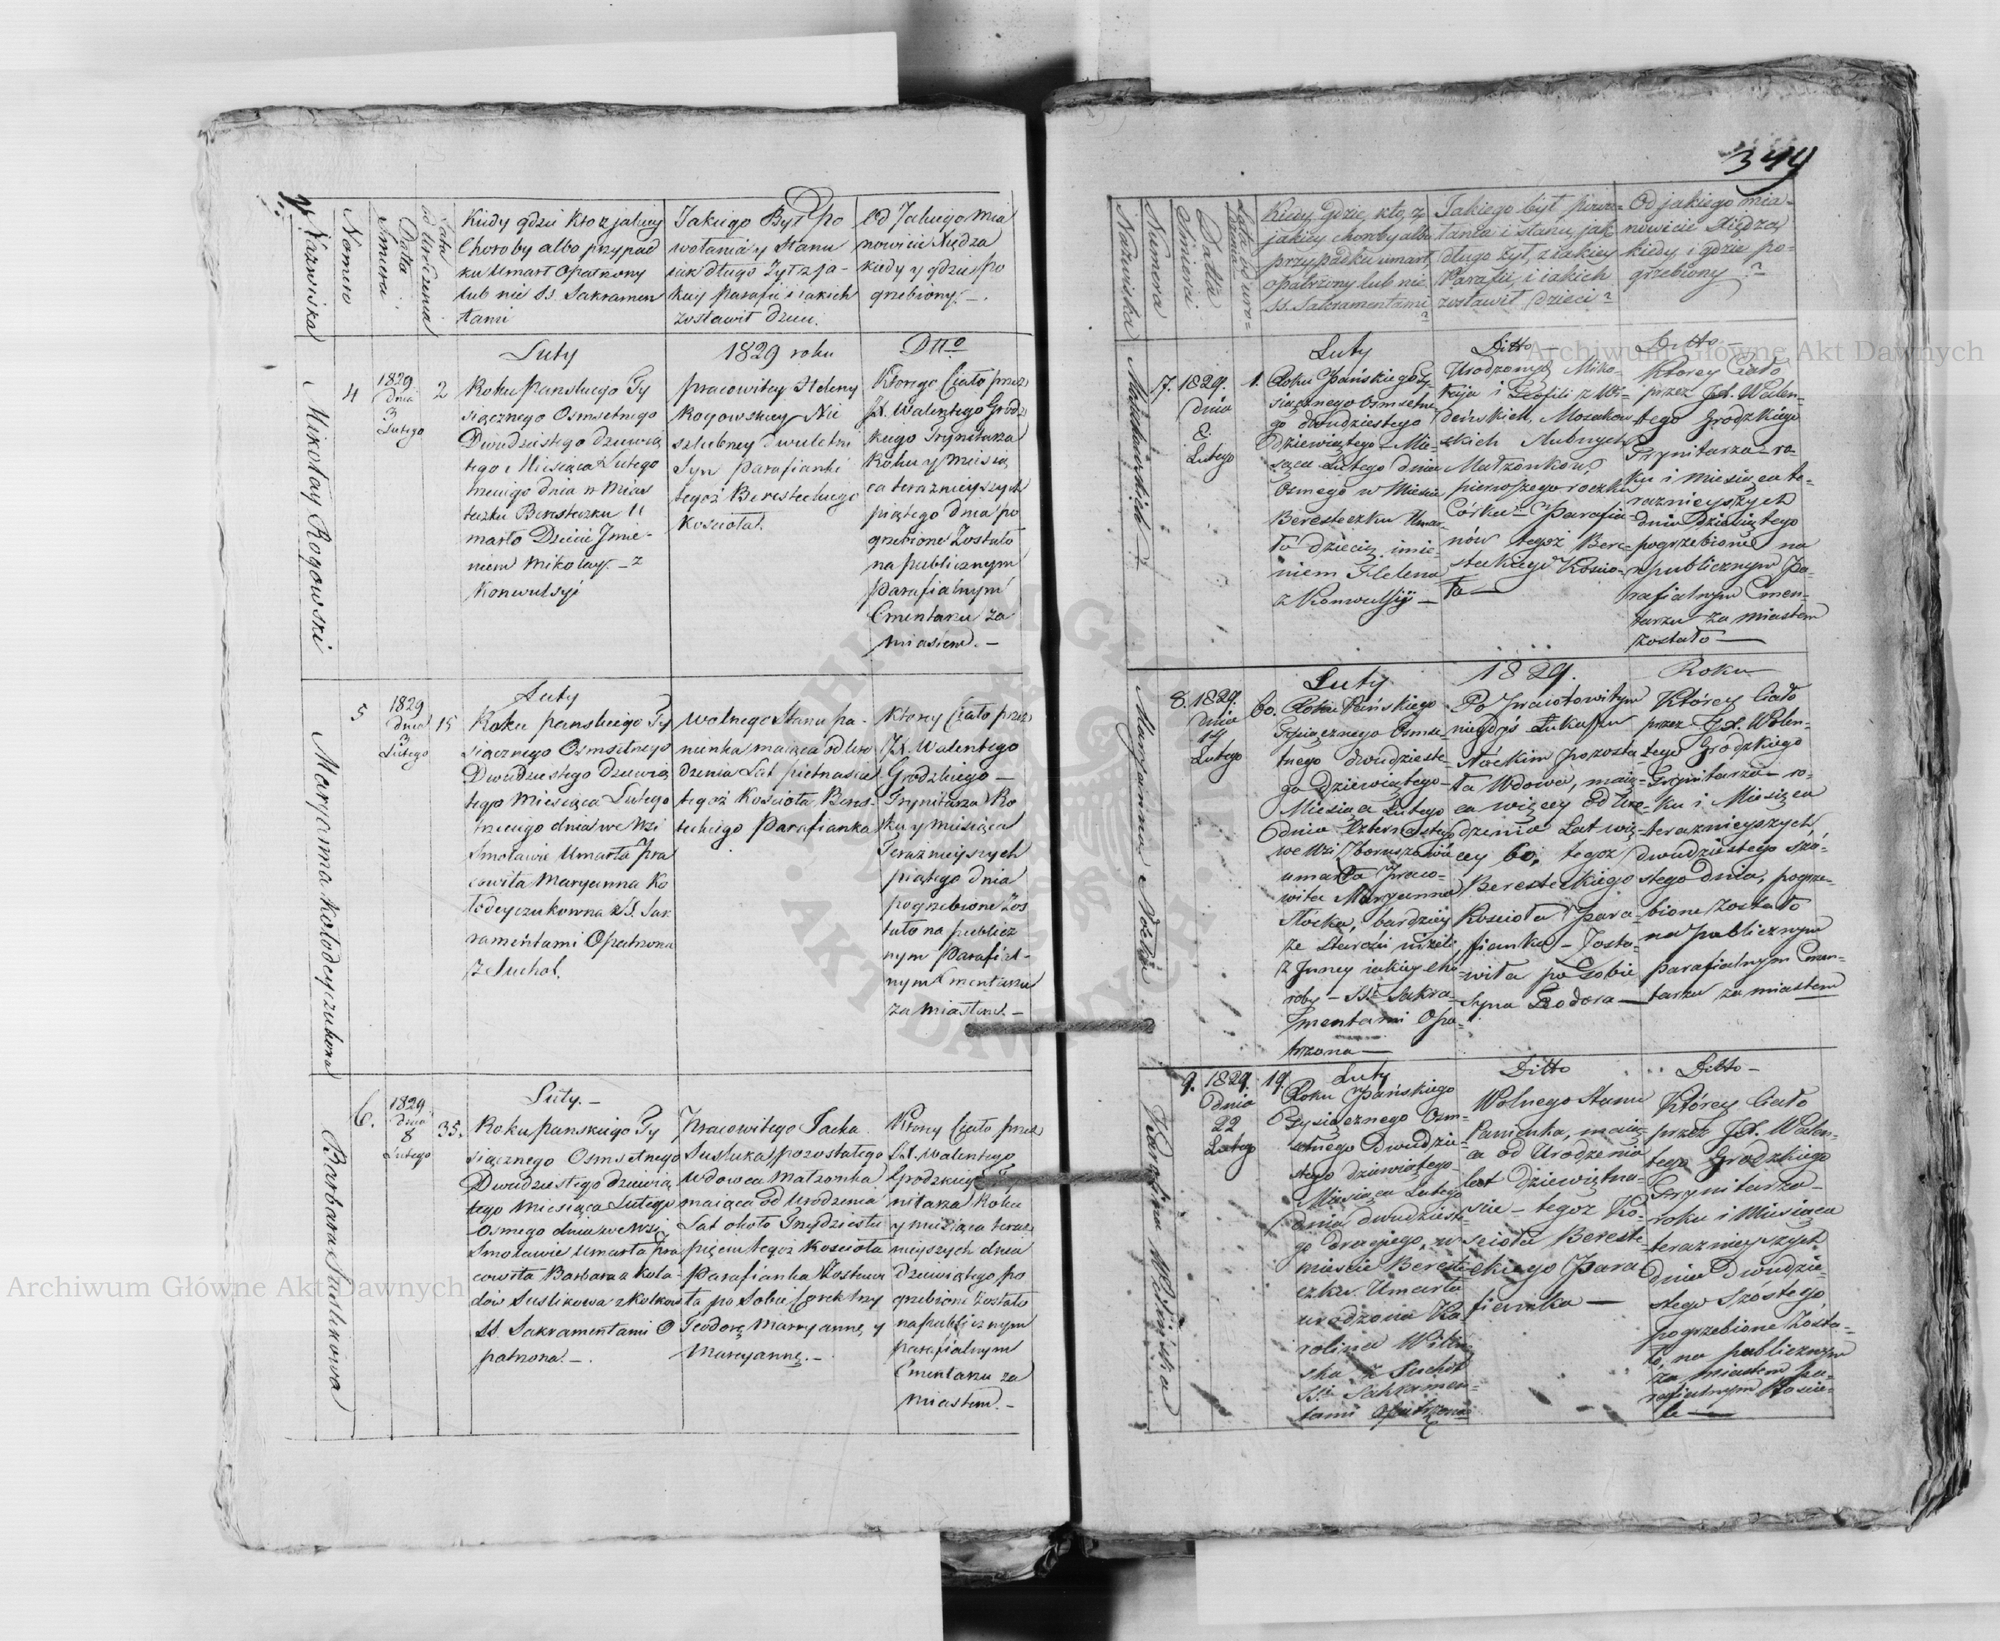 344
Nazwiska
Numero
Data
Smierci
Lata
od Urodzenia
Kiedy gdzie kto z jakiey
Choroby albo przypad
ku Umarł Opatrzony
lub nie SS. Sakramen
tami
Jakiego Był Po
wołania y Stanu
jak długo Żył z ja-
kiey Parafii i jakich
zostawił dzieci.
Od Jakiego mia
nowicie Xiędza
kiedy y gdzie po
grzebiony. -
Mikołay Rogowski
4
1829
Dnia
3
Lutego
2
Luty
Roku Panskiego Ty
siącznego Osmsetnego
Dwudziestego dziewią
tego Miesiąca Lutego
trzeciego dnia w Mias
teczku Beresteczku U
marło Dziecie Jmie-
niem Mikołay. - z
Konwulsyi
1829 roku
pracowitey Heleny
Rogowskiey Nie
szlubney dwuletni
Syn parafianki
tegoż Beresteckiego
Kościoła.
Dtto
Którego Ciało przez
JX. Walentego Grodz
kiego Trynitarza
Roku y Miesią
ca teraznieyszych
piątego dnia po
grzebione Zostało
na publicznym
Parafialnym
Cmentarzu za
Miastem. -
Maryanna Kołodeyczukowna
5
1829
dnia
3
Lutego
15
Luty
Roku panskiego Ty
siącznego Osmsetnego
Dwudziestego dziewią
tego Miesiąca Lutego
trzeciego dnia we Wsi
Smolawie Umarła Pra
cowita Maryanna Ko
łodeyczukowna SS. Sak
ramentami Opatrzona
z Suchot.
Wolnego Stanu pa-
nienka maiąca od Uro
dzenia Lat piętnascie
tegoż Kościoła Beres-
teckiego Parafianka
Ktorey Ciało przez
JX. Walentego
Grodzkiego -
Trynitarza Ro
ku y Miesiąca
Teraźnieyszych
piątego dnia
pogrzebione Zos
tało na publicz
nym Parafial-
nym Cmentarzu
za Miastem. -
Barbara Suslikowa
6.
1829
dnia
8
Lutego
35.
Luty. -
Roku panskiego Ty
siącznego Osmsetnego
Dwudziestego dziewią
tego Miesiąca Lutego
Osmego dnia we Wsi
Smolawie Umarła Pra
cowita Barbara z Koła-
dów Suslikowa z Kolkow
SS. Sakramentami O
patrzona. -
Pracowitego Jacka
Susluka pozostałego
Wdowca Małżonka
maiąca od Urodzenia
Lat około Trzydziestu
pięciu tegoż Kościoła
Parafianka Zostawi
ła po Sobie Corek trzy
Teodorę Maryannę y
Maryannę. -
Ktorey Ciało przez
JX. Walentego
Grodzkiego Try
nitarza Roku
y Miesiąca teraz
nieyszych dnia
Dziewiątego po
grzebione Zostało
na publicznym
parafialnym
Cmentarzu za
Miastem. -
Nazwiska
Numera
Datta
Smierci
Lata od uro-
dzenia
Kiedy, gdzie, kto, z
jakiey choroby albo
przypadku umarł,
opatrzony lub nie
SS. Sakramentami?
Jakiego był powo-
łania i stanu, jak
długo żył, z jakiey
Parafii, i jakich
zostawił dzieci?
Od jakiego mia-
nowicie Xiędza,
kiedy i gdzie po-
grzebiony?
7.
1829.
dnia
8.
Lutego
1.
Luty
Roku Pańskiego Ty-
siącznego Osmsetne-
go dwudziestego
dziewiątego Mie-
siąca Lutego dnia
Osmego w Mieście
Beresteczku Umar-
ło dziecię imie-
niem Helena
z Konwulsyi -
Ditto
Urodzonych Miko-
łaja i Teofili z Wi-
deńskich,
skich slubnych
Małżonków,
pierwszego roczku
Córka - Parafia-
nów tegoż Bere-
steckiego Kościo-
ła -
Ditto -
Ktorey Ciało
przez JX. Walen-
tego Grodzkiego
Trynitarza ro-
ku i miesiąca te-
raznieyszych
dnia Dziesiątego
pogrzebione na
publicznym Pa-
rafialnym Cmen-
tarzu za miastem
zostało -
8.
1829.
dnia
14
Lutego
60.
Luty
Roku Pańskiego
Tysiącznego Osmse-
tnego dwudzieste-
go dziewiątego
Miesiąca Lutego
dnia Czternastego
we Wsi
umarła Praco-
wita Maryanna
bardziey
ze starosci niżeli
z Inney iakiey cho-
roby - SS. Sakra-
mentami Opa-
trzona -
1829.
Po Pracowitym
niegdyś Łukaszu
pozosta-
ła Wdowa, maią-
ca więcey od Uro-
dzenia Lat wię-
cey 60, tegoż
Beresteckiego
Kościoła Para-
fianka - Zosta-
wiła po Sobie
Syna Teodora -
Roku
Którey Ciało
przez JX. Walen-
tego Grodzkiego
Trynitarza ro-
ku i Miesiąca
teraznieyszych
dwudziestego szó-
stego dnia, pogrze-
bione zostało
na publicznym
parafialnym Cmen-
tarzu za miastem
Karolina Wilinska
9.
1829.
dnia
22
Lutego
19.
Luty
Roku Pańskiego
Tysiącznego Osm-
setnego Dwudzie-
stego dziewiątego
Miesiąca Lutego
dnia dwudzieste-
go drugiego, w
mieście Bereste-
czku Umarła
urodzona Ka
rolina Wilin-
ska z Suchot
SS. Sakramen-
tami opatrzona
Ditto
Wolnego Stanu
Panienka, maią-
ca od Urodzenia
lat dziewiętna-
ście - tegoż Ko-
ścioła Bereste-
ckiego Para
fianka -
Ditto -
Którey Ciało
przez JX. Walen-
tego Grodzkiego
Trynitarza -
roku i Miesiąca
teraznieyszych
dnia Dwudzie-
stego Szóstego,
pogrzebione Zosta-
ło, na publicznym
za miastem pa-
rafialnym Koście-
le -
Archiwum Główne Akt Dawnych
Archiwum Główne Akt Dawnych
ARCHIWUM GŁÓWNE AKT DAWNYCH